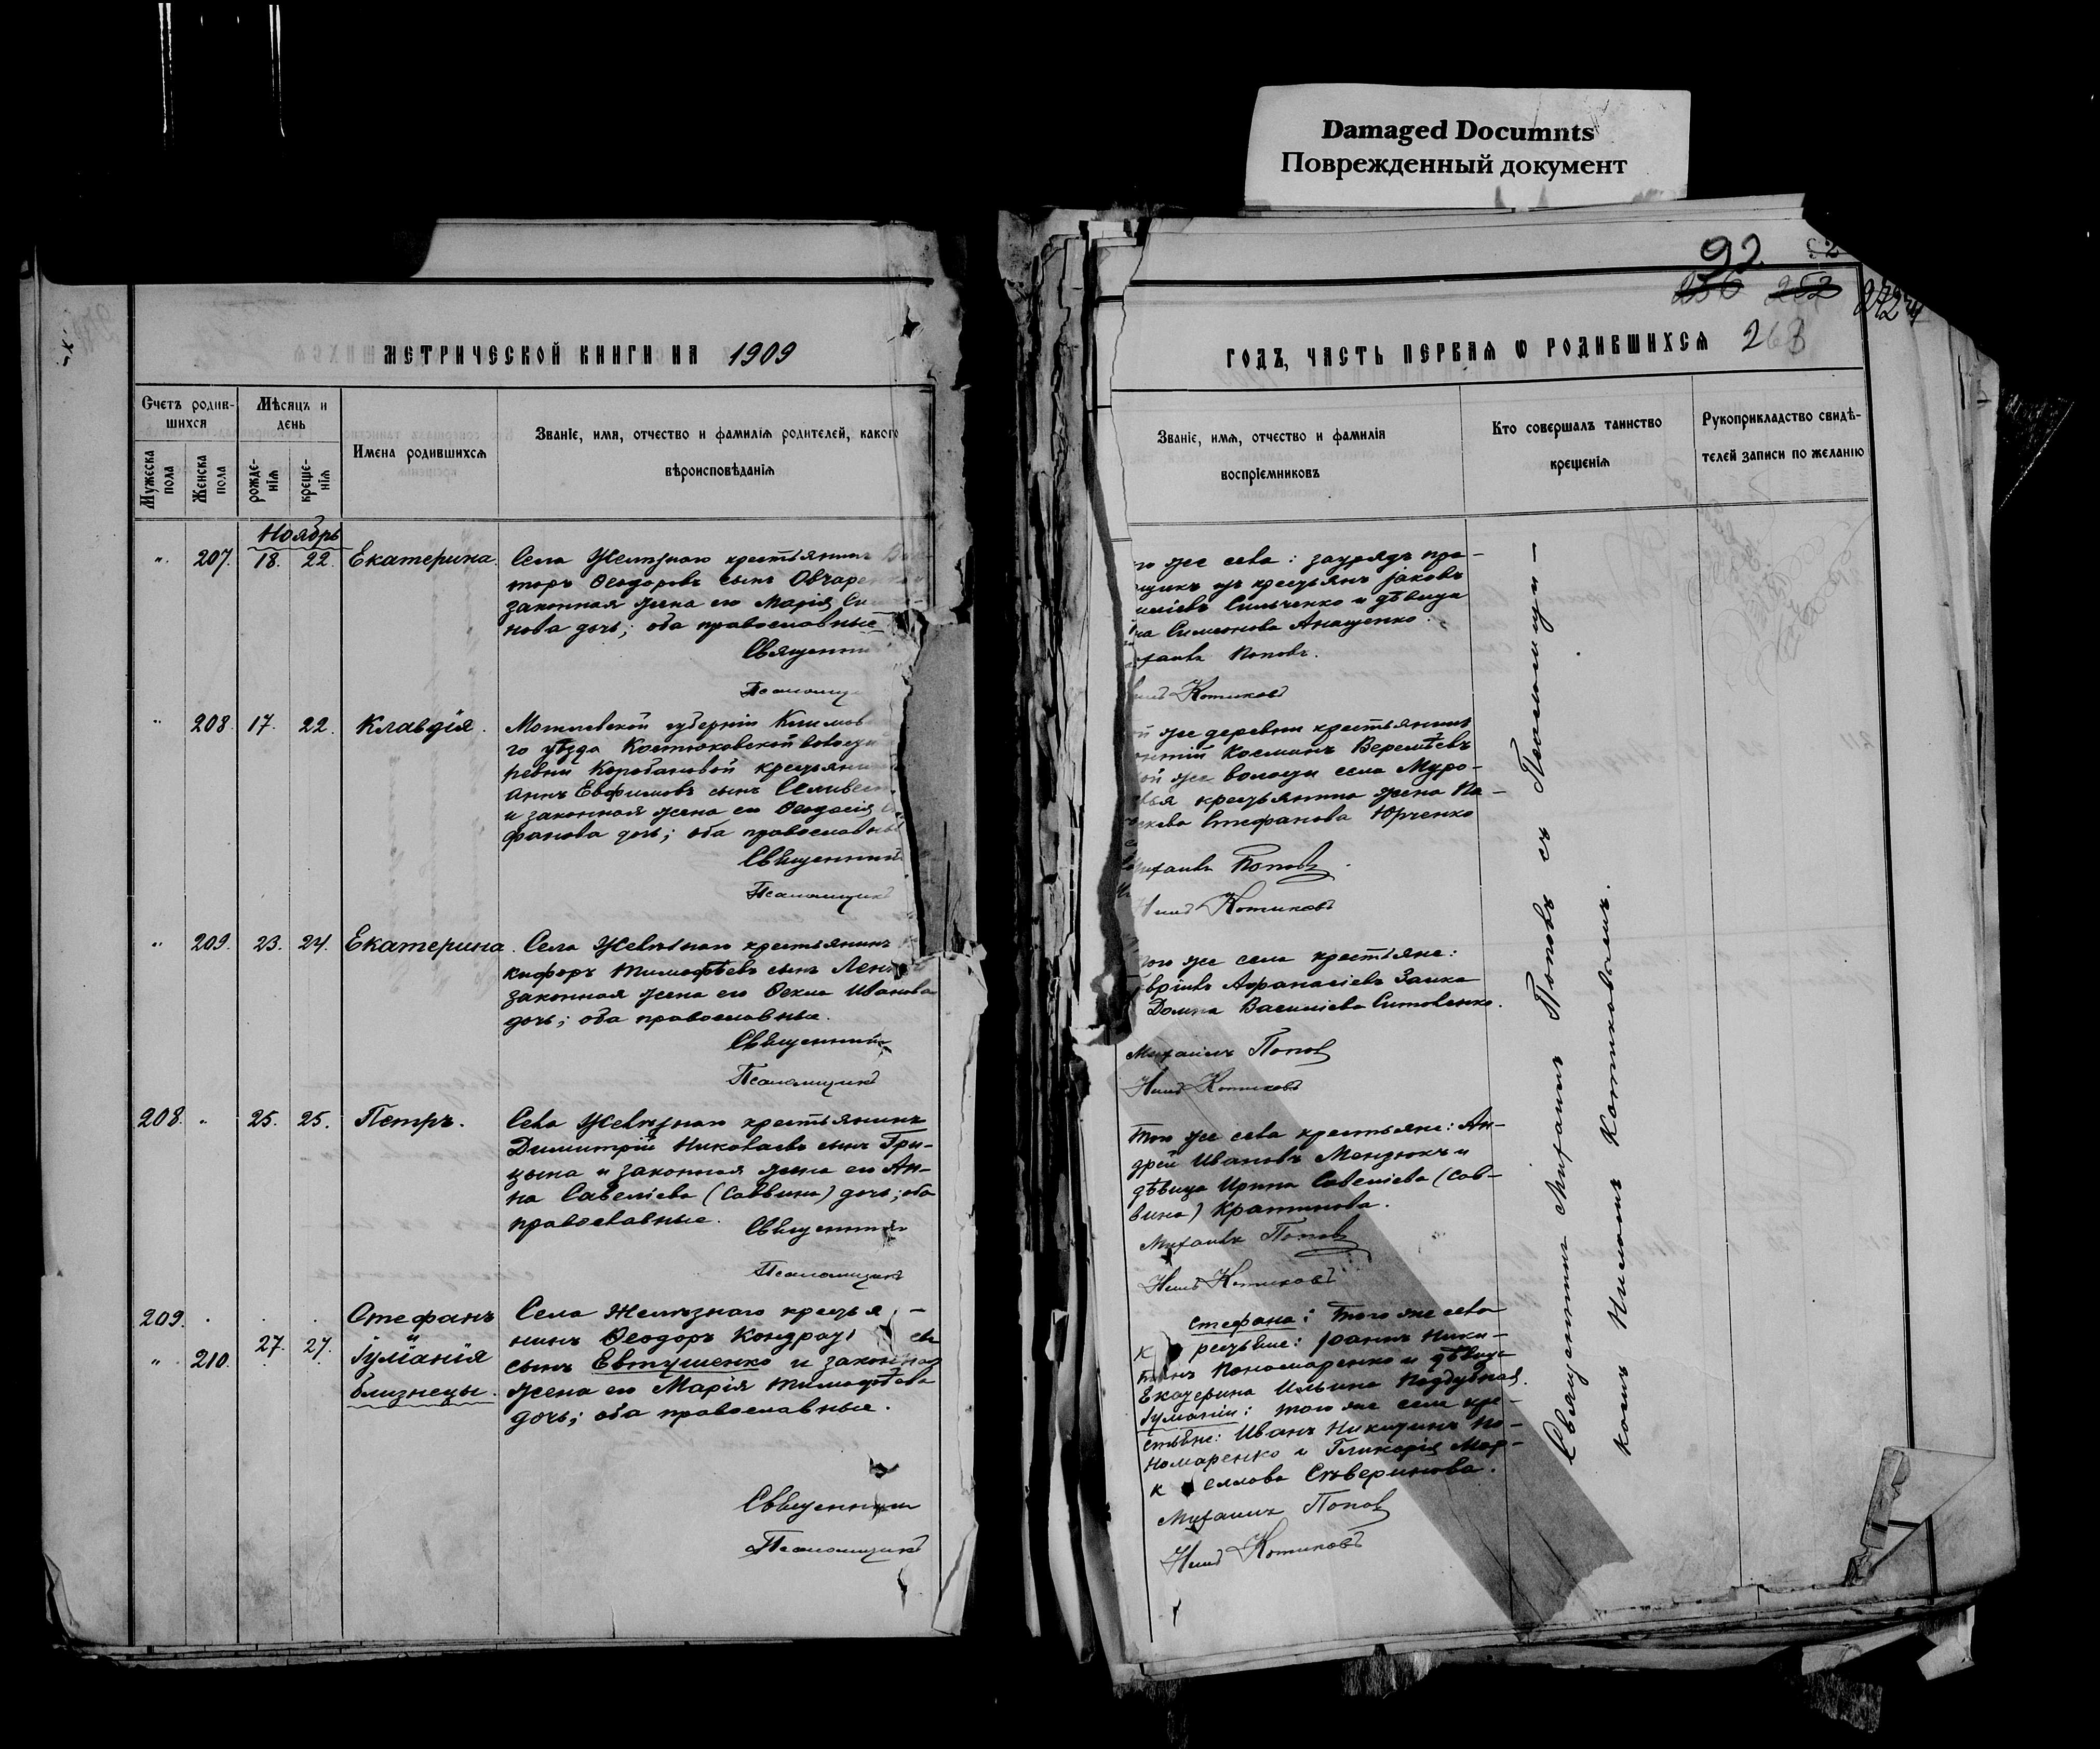 Damaged Documnts
Поврежденный документ
92.
256 252
МЕТРИЧЕСКОЙ КНИГИ НА 1909
ГОДЪ, ЧАСТЬ ПЕРВАЯ Ѡ РОДИВШИХСЯ 263
Счетъ родив-
шихся
Мѣсяцъ и
день
Мужеска
пола
Женска
пола
рожде-
нія
креще-
нія
Имена родившихся
Званіе, имя, отчество и фамилія родителей, какого
вѣроисповѣданія
Званіе, имя, отчество и фамилія
воспріемниковъ
Кто совершалъ таинство
крещенія
Рукоприкладство свидѣ-
телей записи по желанію
Ноябрь
" 207. 18. 22. Екатерина.
Села Желѣзнаго крестьянинъ
торъ Ѳеодоровъ сынъ Овчарен
законная жена его Марія
нова дочь; оба православные
Священни
Псаломщи
го же села: заурядъ пра-
щикъ изъ крестьянъ Іаковъ
Сильченко и дѣвица
на Симеонова Анащенко.
хаилъ Поповъ.
Котиковъ
" 208. 17. 22. Клавдія.
Могилевской губерніи Климов
го уѣзда Костюковской волости
ревни Коробановой крестьянин
аннъ Евфимовъ сынъ Селивест
и законная жена его Ѳеодосія
фанова дочь; оба православны
Священник
Псаломщикъ
й же деревни крестьянинъ
Косминъ Веремѣевъ
ой же волости села Муро-
вья крестьянина жена Па-
скева Стефанова Юрченко
Михаилъ Поповъ.
Нилъ Котиковъ
" 209. 23. 24. Екатерина.
Села Желѣзнаго крестьянинъ
кифоръ Тимофѣевъ сынъ Лен
законная жена его Ѳекла Иванова
дочь; оба православные.
Священник
Псаломщикъ
того же села крестьяне:
вріилъ Аѳанасіевъ Заика
Домна Василіева Ситовенко.
Михаилъ Попов
Нилъ Котиковъ
208. " 25. 25. Петръ.
Села Желѣзнаго крестьянинъ
Димитрій Николаевъ сынъ Гри-
цына и законная жена его Ан-
на Савеліева (Саввина) дочь; оба
православные.
Священник
Псаломщикъ
Того же села крестьяне: Ан-
дрей Ивановъ Мендюкъ и
дѣвица Ирина Савеліева (Сав-
вина) Кратинова.
Михаилъ Попов
Нилъ Котиковъ
209. Стефанъ
и
" 210. 27. 27. Іуліанія
близнецы.
Села Желѣзнаго крестья-
нинъ Ѳеодоръ Кондрат евъ
сынъ Евтушенко и законная
жена его Марія Тимоѳѣева
дочь; оба православные.
Священник
Псаломщикъ
Стефана: Того же села
к рестьяне: Іоаннъ Ники-
тинъ Пономаренко и дѣвица
Екатерина Ильина Поддубная.
Іуліаніи: того же села кре-
стьяне: Иванъ Никитинъ По-
номаренко и Гликерія Мар-
к еллова Северинова.
Михаилъ Попов
Нилъ Котиковъ
Священникъ Михаилъ Поповъ съ Псаломщи-
комъ Ниломъ Котиковымъ.